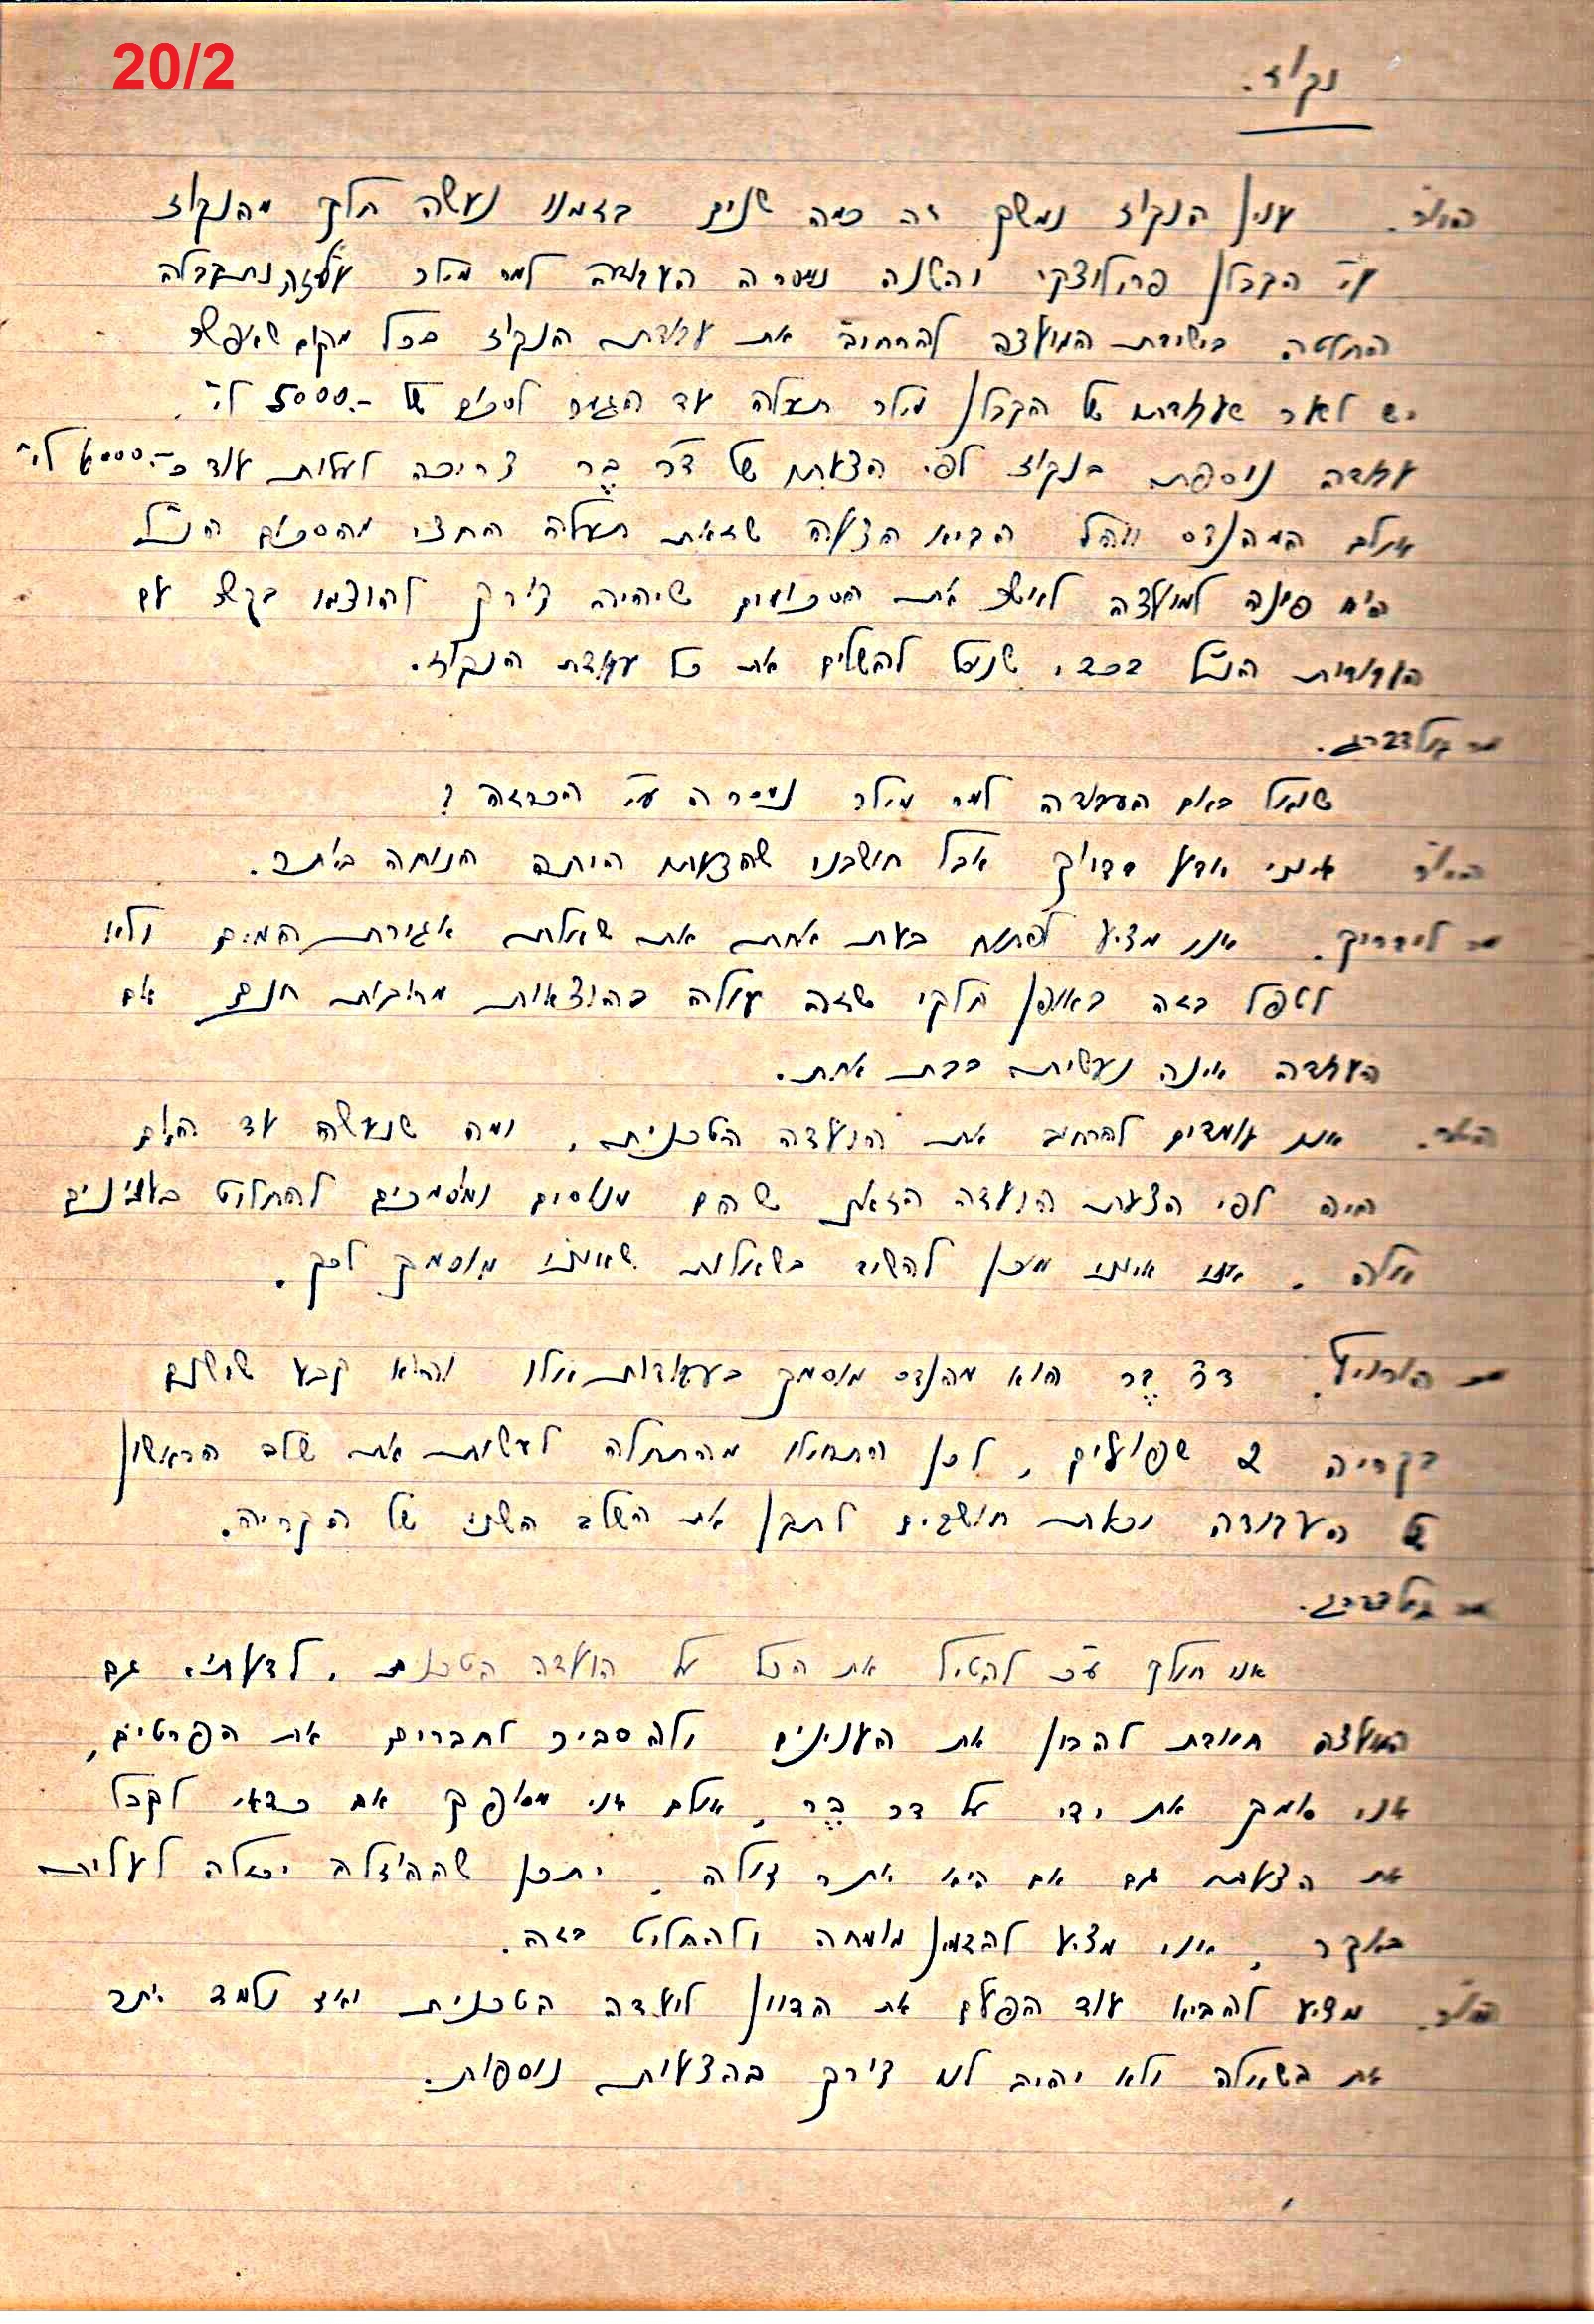 20/2
נקוז.
היו"ר. ענין הנקוז נמשך זה כמה שנים בזמנו נעשה חלק מהנקוז
ע"י הקבלן פרילוצקי והשנה נמסרה העבודה למר מילר נתקבלה
החלטה בישיבת המועצה להרחיב את עבודת הנקוז בכל מקום שאפשר
יש לאמר שעבודת של הקבלן מילר תעלה עד הגמר לסכום של 5000.- ל"י.
עבודה נוספת בנקוז לפי הצעת של ד"ר בֶר צריכה לעלות עוד כ-6000.- ל"י
אולם המהנדס הביא הצעה שזאת תעלה החצי מהסכום הנ"ל
פונה למועצה לאשר את הסכומים שיהיה צורך להוציאו בקשר עם
העבודות הנ"ל בכדי שנוכל להשלים את כל עבודת הנקוז.
מר גולדברג.
שואל באם העבודה למר מילר נמסרה ע"י הכרזה?
היו"ר אינני יודע בדיוק אבל חושבני שהצעתו היתה הנוחה ביותר.
מר אני מציע לפתוח בעת אחת את שאלת אגירת המים ולא
לטפל בזה באופן חלקי שזה עולה בהוצאות מרובות חנם אם
העבודה אינה נעשית בבת אחת.
היו"ר. אנו עומדים להרחיב את הועדה הטכנית, ומה שנעשה עד היום
היה לפי הצעת הועדה הזאת שהם מנוסים ומוסמכים להחליט בענינים
אלה. אני אינני מוכן להשיב בשאלות שאינני מוסמך לכך.
מר הורוויץ. ד"ר בֶר הוא מהנדס מוסמך בעבודות אלו והוא קבע שישנם
בקריה 2 שפועים, לכן התחילו מהתחלה לעשות את שלב הראשון
של העבודה וכעת חושבים לתכנן את השלב השני של הקריה.
מר גולדברג.
אני חולק ע"כ להטיל את הכל על הועדה הטכנית, לדעתי גם
המועצה חייבת להכין את הענינים ולהסביר לחברים את הפרטים,
אני סומך את ידי על דר בֶר, אולם אני מסופק אם כדאי לקבל
את הצעתו גם אם היא יותר זולה. יתכן שההוזלה יכולה לעלות
ביוקר, אני מציע להזמין מומחה ולהחליט בזה.
היו"ר. מציע להביא עוד הפעם את הדיון לועדה הטכנית ואיך נלמד יותר
את השאלה ולא יהיה לנו צורך בהצעות נוספות.